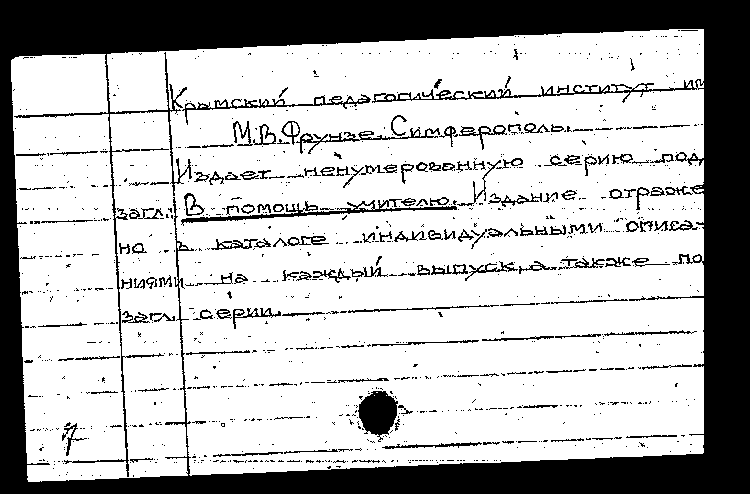 Крымский педагогический институт им
М.В.Фрунзе. Симферополь.
Издает ненумерованную серию под
загл.: В помощь учителю. Издание отраже
но в каталоге индивидуальными описа-
ниями на каждый выпуск, а также по
загл. серии.